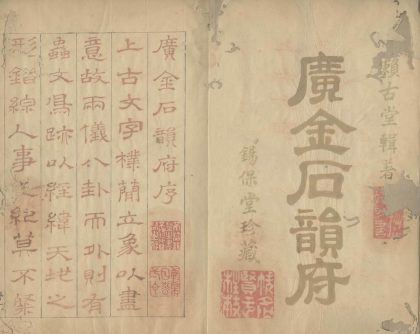 賴古堂輯著
廣金石韻府
錫保堂珍藏
廣金石韻府序
上古文字樸簡立象以盡
意故兩儀八卦而外則有
蟲文鳥跡以經緯天地之
形錯綜人事 紀莫不